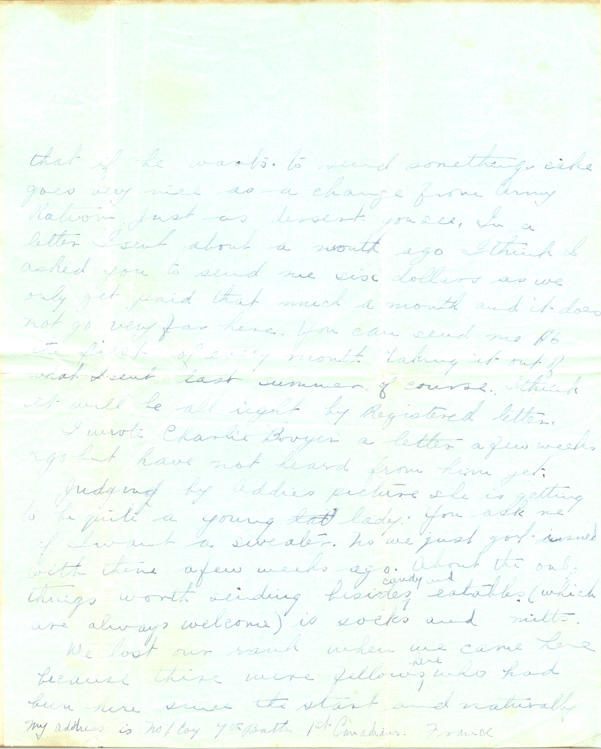 that if he wants to send something cake
goes very nice as a change from Army
Rations just as dessert you see. In a
letter I sent about a month ago I think I
asked you to send me six dollars as we
only get paid that much a month and it does
not go very far here. You can send me $6
the first of every month taking it out of
what I sent last summer of course. I think
it will be all right by Registered letter.
I wrote Charlie Bovyer a letter a few weeks
ago but have not heard from him yet.
Judging by Addies picture she is getting
to be quite a young lady. You ask me
if I want a sweater. No we just got issued
with them a few weeks ago. About the only
things worth sending besides candy and eatables (which
are always welcome) is socks and mitts.
We lost our rank when we came here
because there were fellows here who had
been here since the start and naturally
My address is No 1 Coy 7th Battn 1st Canadian France